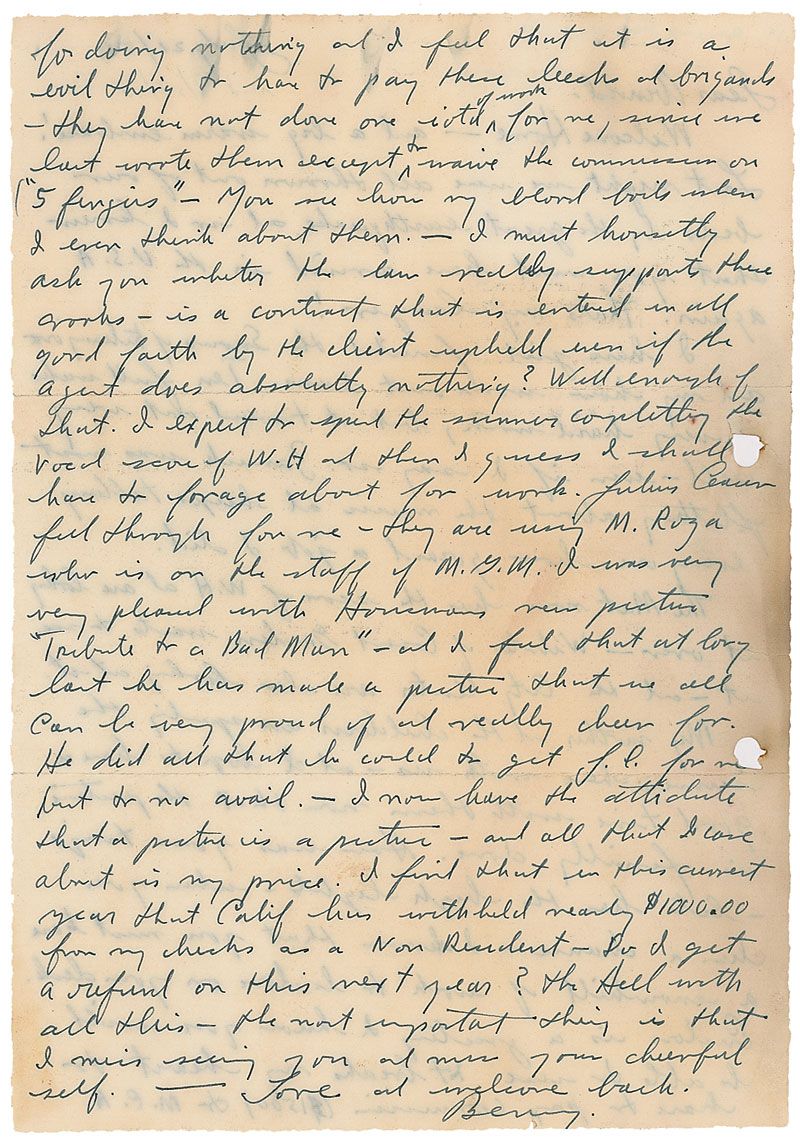 for doing nothing and I feel that it is a
evil thing to have to pay these leechs and brigands
– they have not done one iota of work for me, since we
last wrote them except to waive the commission on
("5 fingers" – You see how my blood boils when
I even think about them. – I must honsetly
ask you whether the law really supports these
crooks – is a contract that is entered in all
good faith by the client upheld even if the
agent does absolutely nothing? Well enough of
that. I expect to spend the summer completing the
vocal score of W.H and then I guess I shall
have to forage about for work. Julius Ceaser
fell through for me – they are using M. Roza
who is on the staff of M.G.M. I was very
very pleased with Housmans new picture
"Tribute to a Bad Man" – and I feel that at long
last he has made a picture that we all
can be very proud of and really cheer for.
He did all that he could to get J.C. for me
but to no avail. – I now have the attidute
that a picture is a picture – and all that I care
about is my price. I find that in this current
year that Calif has withheld nearly $1000.00
from my checks as a Non Resident – Do I get
a refund on this next year? The Hell with
all this – the most important thing is that
I miss seeing you and miss your cheerful
self. — Love and welcome back.
Benny.